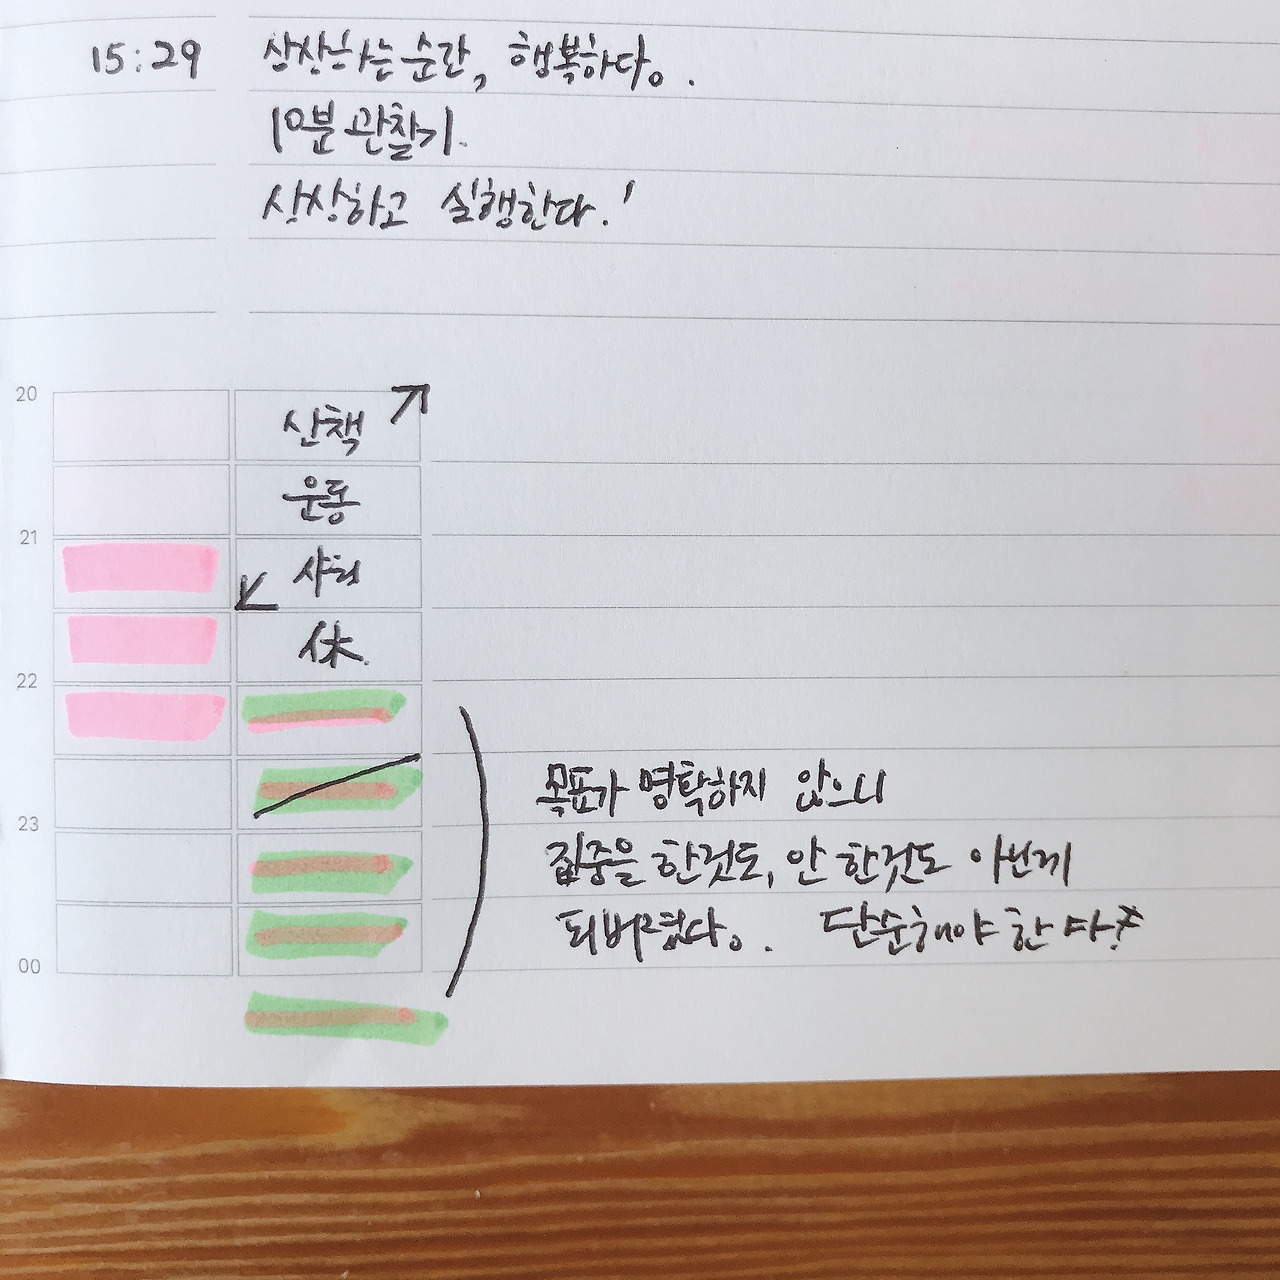 15:29 상상하는 순간, 행복하다.
10분 관찰기.
상상하고 실행한다.!
20
산책
운동
21
샤워
休.
22
목표가 명확하지 않으니
23
집중을 한것도, 안 한것도 아닌게
되버렸다. 단순해야 한다.
00